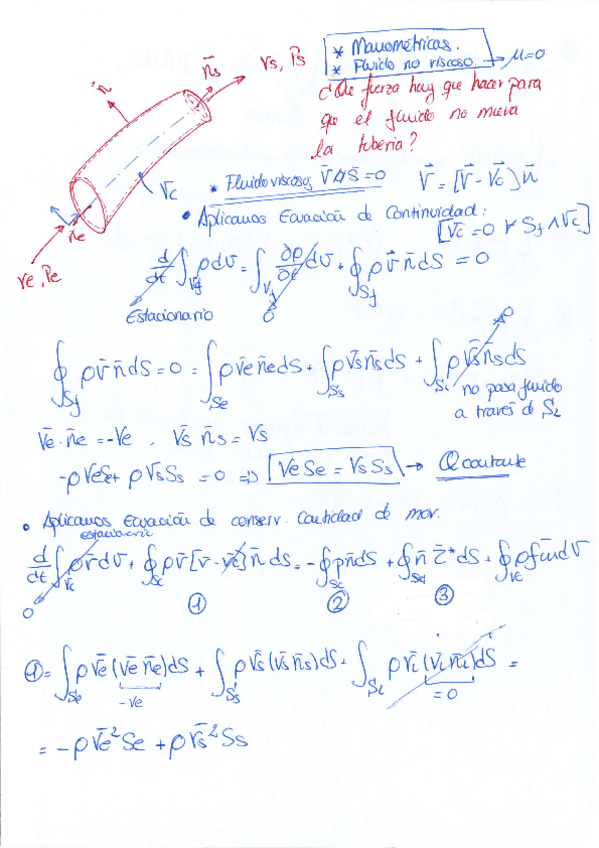 * Manométricas.
* Fluido no viscoso → μ=0
n̄
n̄s
vs, Ps
¿Que fuerza hay que hacer para
que el fluido no mueva
la tuberia?
v̄c
* Fluido viscoso
V̄ = [v̄ - v̄c] n̄
n̄e
ve, Pe
• Aplicamos Ecuación de Continuidad:
[v̄c = 0 ∀ Sf ∧ Vc]
d/dt ∫Vf ρdv = ∫Vf ∂ρ/∂t dv + ∮Sf ρ v̄ n̄ dS = 0
Estacionario
0
0
∮Sf ρv̄ n̄ dS = 0 = ∫Se ρ v̄e n̄e dS + ∫Ss ρ v̄s n̄s dS + ∫SL ρ v̄s n̄s dS
no pasa fluido
a través d SL
v̄e · n̄e = -ve , v̄s n̄s = vs
-ρ ve Se + ρ vs Ss = 0 => ve Se = vs Ss → Q constante
• Aplicamos Ecuación de conserv. Cantidad de mov.
estacionario
d/dt ∫Vc ρv̄ dv + ∮Sc ρv̄ [v̄ - v̄c] n̄ dS = -∮Sc p n̄ dS + ∮Sc n̄ τ̄* dS + ∮Vc ρ f̄m dV
0
① ② ③
① = ∫Se ρ v̄e (v̄e n̄e) dS + ∫Ss ρ v̄s (v̄s n̄s) dS + ∫SL ρ v̄L (v̄L n̄L) dS =
-ve
= 0
= -ρ v̄e² Se + ρ v̄s² Ss